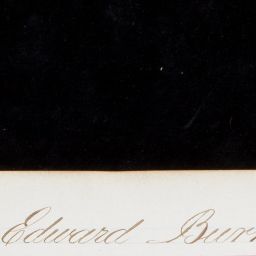 Edward Burr